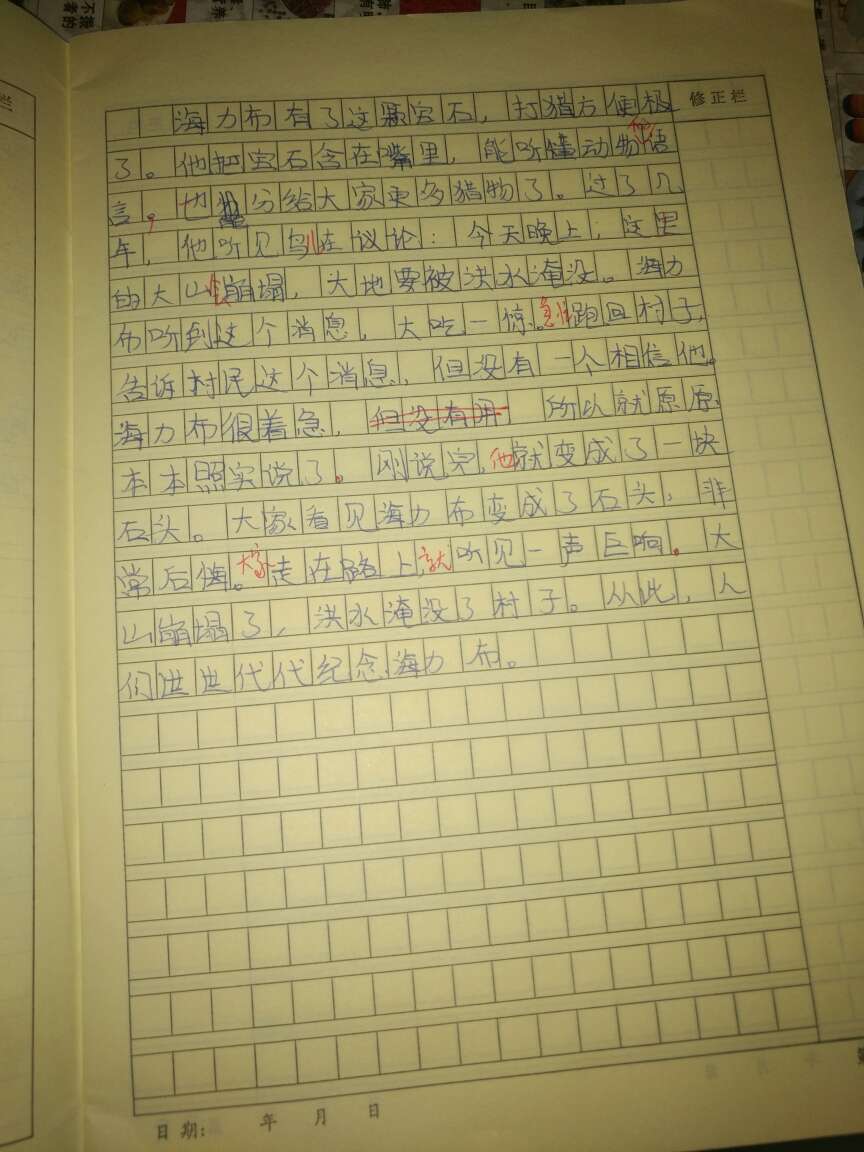 修正栏
海力布有了这颗宝石，打猎方便极
了。他把宝石含在嘴里，能听懂动物的语
言，也分给大家更多猎物了。过了几
年，他听见鸟儿在议论：今天晚上，这里
的大山崩塌，大地要被洪水淹没。海力
布听到这个消息，大吃一惊。急忙跑回村子，
告诉村民这个消息，但没有一个相信他。
海力布很着急，但没有用 所以就原原
本本照实说了。刚说完，他就变成了一块
石头。大家看见海力布变成了石头，非
常后悔。大家走在路上，就听见一声巨响。大
山崩塌了，洪水淹没了村子。从此，人
们世世代代纪念海力布。
日期： 年 月 日